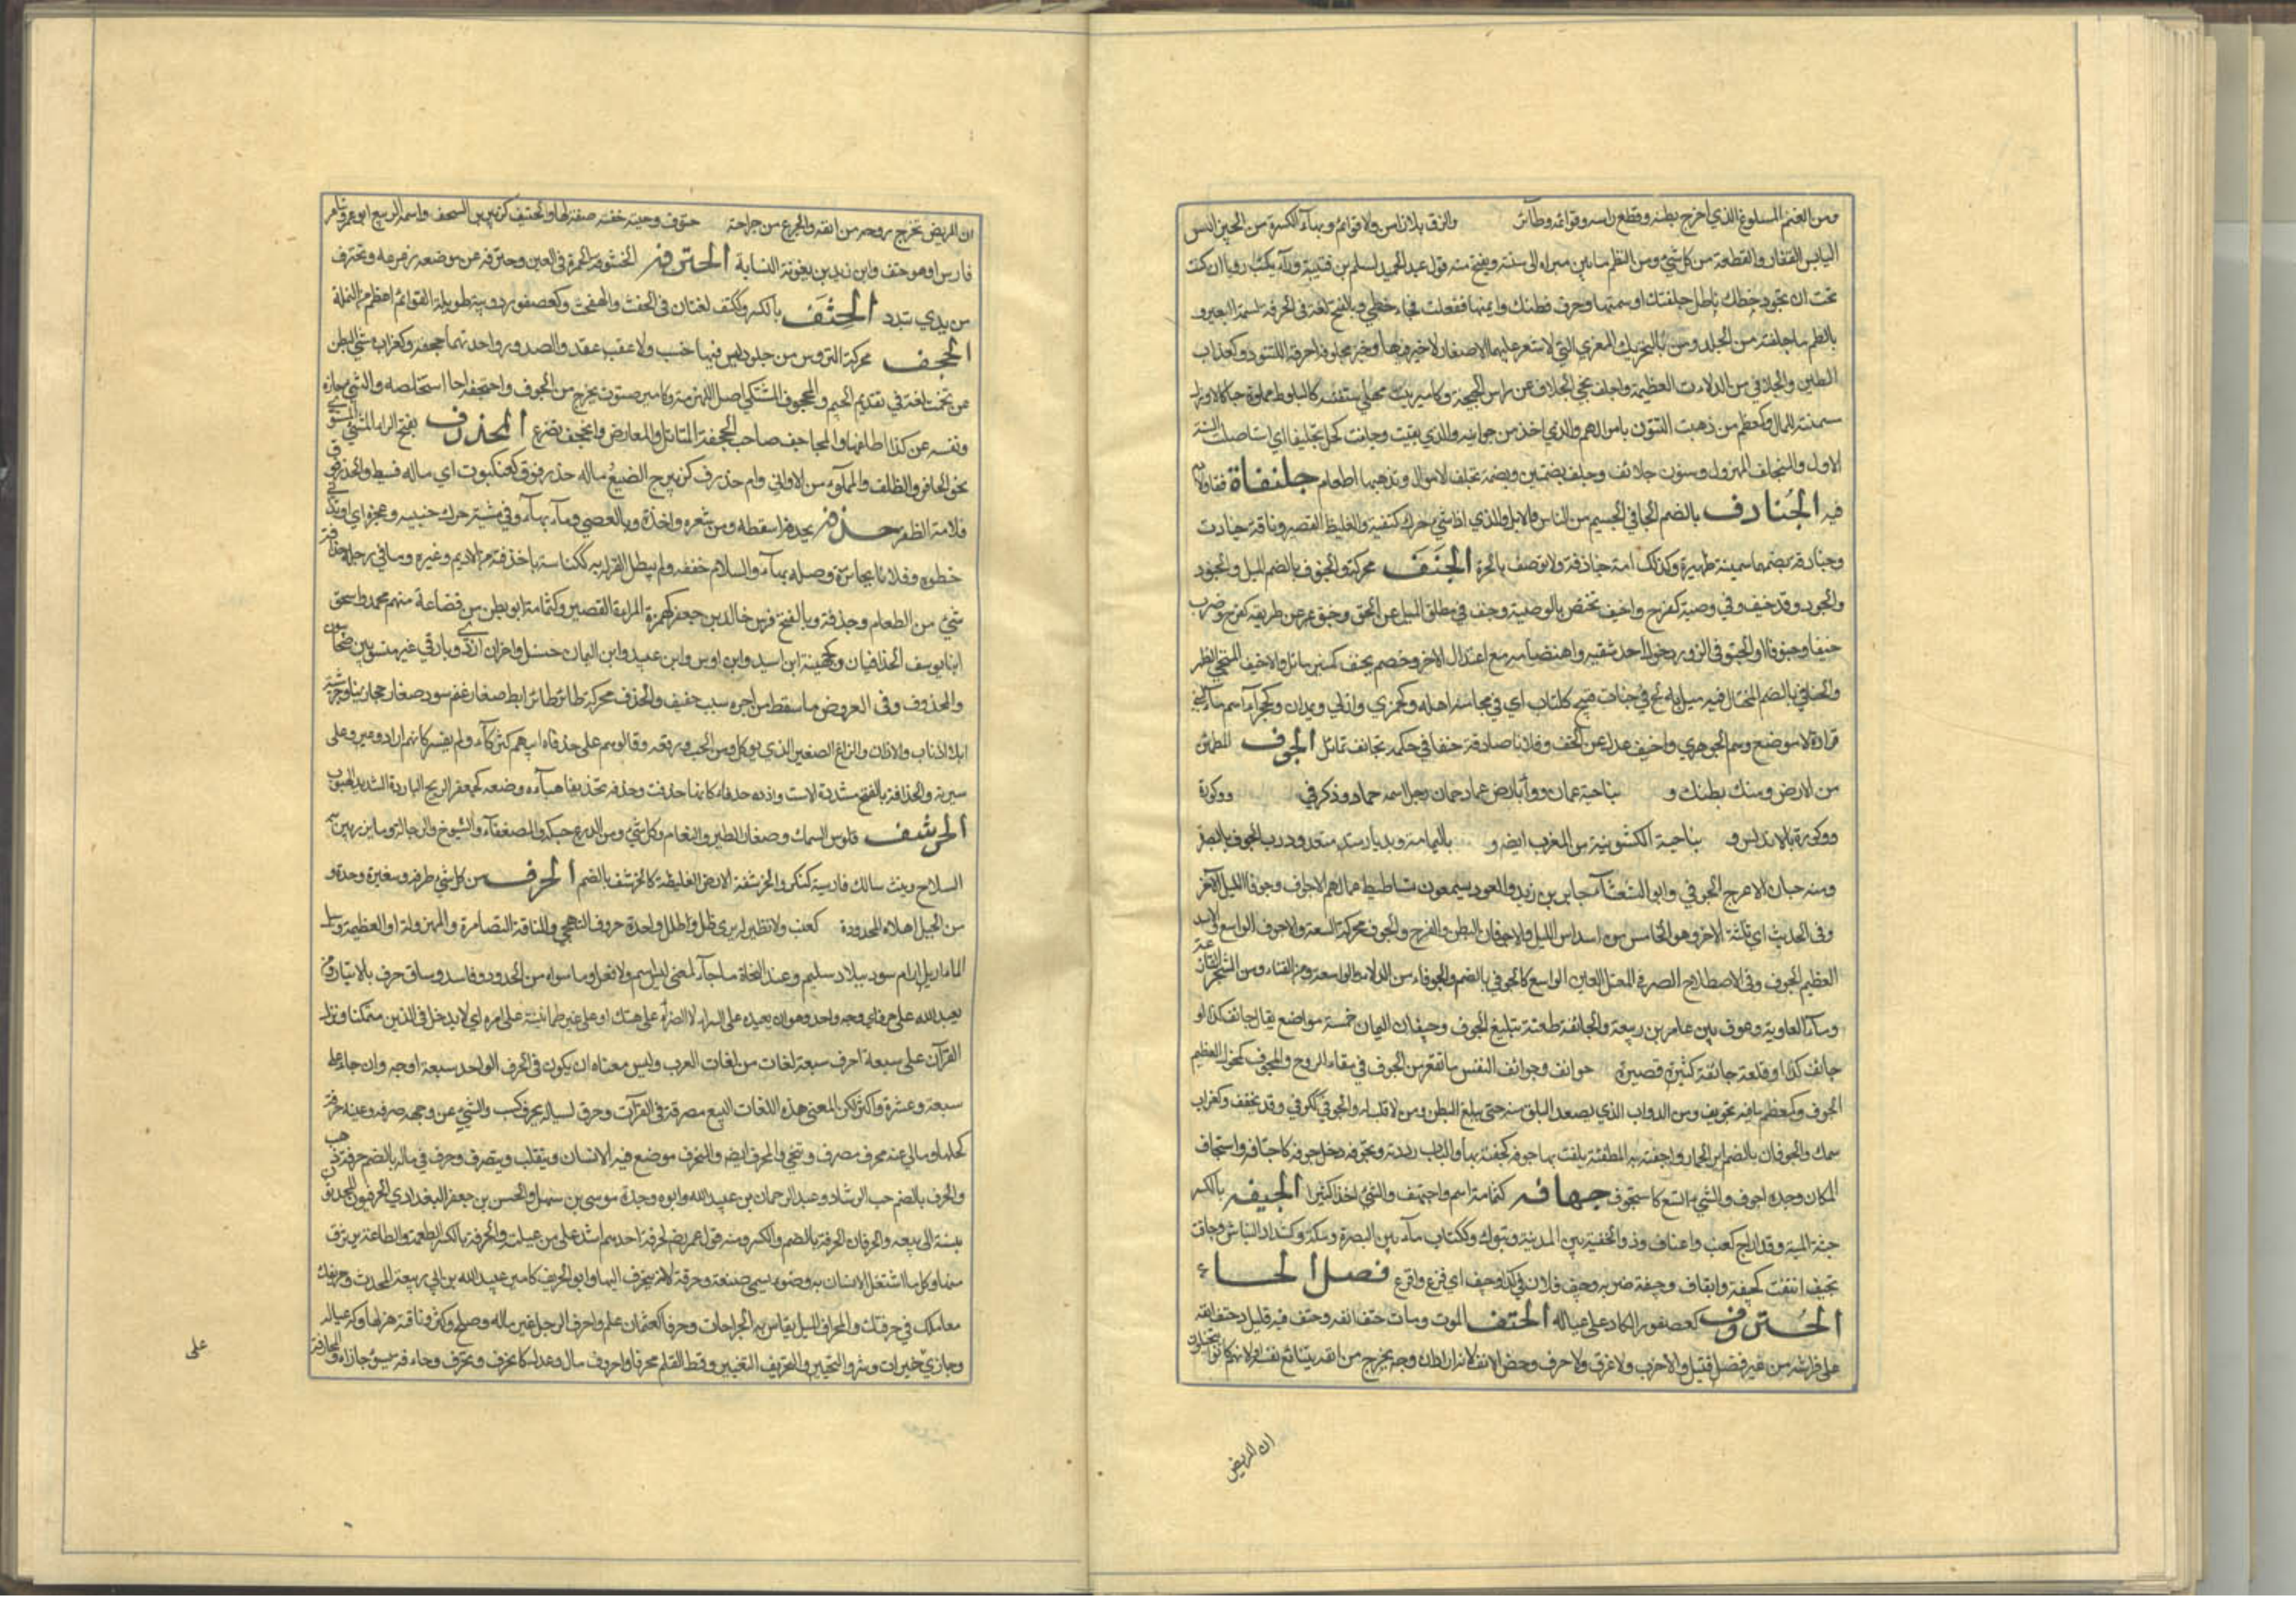 ومن الغنم المسلوخ الذي اخرج بطنه وقطع راسه وقوائمه وطائر والزق بلا راس ولا قوائم وبهاء الكسرة من الخبز
اليابس القفار والقطعة من كل شيء ومن الظلم ما بين مبراه الى سنته ويفتح منه قول عبد الحميد لسلم بن قتيبة ورآه يكتب رديا ان كنت
تحب ان تجود خطك فاطل جلفتك واسمنها وحرف قطتك وايمنها ففعلت فجاد خطي وبالفتح لغة في الحرفة لسمة البعير و
بالظلم ما جلفته من الجلد ومن المعزى التي لا شعر عليها الا صغار لا خير فيها وخبز مجلوف احرقه التنور وكغراب
الطين والجلافي من الدلاء العظيمة واجلف نحى الجلاف عن راس
سنمته للمال وكمعظم من ذهبت السنون بامواله والذي اخذ من جوانبه والذي بقيت وجلفت كحل تجليفا اي استاصلت السنة
الاموال والمتجلف المهزول وسنون جلائف وجلف بضمتين وبضمة تجلف الاموال وتذهبها طعام جلنفاة قفار لا ادم
فيه الجنادف بالضم الجافي الجسيم من الناس والابل والذي اذا مشى حرك كتفيه والغليظ القصير وناقة جنادف
وجنادفة بضمهما سمينة ظهيرة وكذلك امة جنادفة ولا توصف بالحرة الجنف محركة والجنوف بالضم الميل والجور
والجور وقد جنف في وصيته كفرح واجنف تختص بالوصية وجنف في مطلق الميل عن الحق وجنف عن طريقه كفرح وضرب
جنفا وجنوفا او الجنف في الزور دخول احد شقيه وانهضامه مع اعتدال الاخر وخصم مجنف كمنبر مائل والاجنف المنحني الظهر
والجنافي بالضم المختال فيه ميل ولج في جناف قبيح ككتاب اي في مجانبة اهله وكجمزى وارابى ويمدان وكحمراء اسم ماء
فزارة لا موضع وسم الجوهري واجنف عدل عن الحق وفلانا صادفه جنفا في حكمه تجانف تمايل الجوف المطمئن
من الارض ومنك بطنك و بناحية عمان وواد بارض عاد حماه رجل اسمه حمار وذكر في وكورة
وكورة بالاندلس و بناحية اكشونية من المغرب ايضه و باليمامة وبديار سعد ودرب الجوف بالبصرة
ومنه حبان الاعرج الجوفي وابو الشعثاء جابر بن زيد والعود يسمعون شاطيط عمالهم الاجواف وجوف الليل الآخر
وفي الحديث اي ثلثه الاخر وهو الخامس من اسداس الليل والاجوفان البطن والفرج والجوف محركة السعة والاجوف الواسع والاسد
العظيم الجوف وفي الاصطلاح الصرفي المعتل العين الواسع كالجوفي بالضم والجوفاء من الدلاء الواسعة ومن القناة ومن الشجر الفارغة
وماء لمعاوية وعوف بن عامر بن ربيعة والجائفة طعنة تبلغ الجوف وجيفان اليمان خمسة مواضع يقال جائف كذا و
جائف كذا وقلعة جائفة كثيرة قصيرة جوائف وجوائف النفس ما تقعر من الجوف في مقاء الروح والمجوف كمخوف العظيم
الجوف وكمعظم ما فيه تجويف ومن الدواب الذي يصعد البلق منه حتى يبلغ البطن ومن لا قلب له والجوفي ككوفي وقد يخفف وكغراب
سمك والجوفان بالضم اير الحمار واجفته به الطعنة بلغت بها جوفه كجفته بها والباب رددته وتجوفه دخل جوفه كاجتافه واستجاف
المكان وجده اجوف والشيء اتسع كاستجوف جهافة كثمامة اسم واجتهف والشيء اخذ كثيرا الجيفة بالكسر
جثة الميت وقد اراح كعنب واعناف وذو الجيفة بين المدينة وتبوك وككتاب ماء بين البصرة ومكة وكشداد النباش وجافت
تجيف انتنت كجيفت واجتاف وجيفه ضربه وجيف فلان في كذا وجيف اي فزع وافزع فصل الحاء
الحتروف كعصفور الكاد على عياله الحتف الموت ومات حتف انفه وحتف فيه قليل وحتف انفيه
على فراشه من غير قتل ولا ضرب ولا غرق ولا حرق وخص الانف لانه اراد ان روحه يخرج من انفه بتتابع نفسه او لانهم كانوا يتخيلون
ان المريض
ان المريض تخرج روحه من انفه والجريح من جراحته حتوف وحية حتفة صفة لها والحتيف كزبير بن السجف واسمه الربيع ابو عمرو شاعر
فارس او هو حتف وابن زيد بن جعونة النسابة الحترفة الخشونة والحمرة في العين وحترفه من موضعه زعزعه وتحترف
من يدي تبدد الحثف بالكسر وككتف لغتان في الحفث والفحث وكعصفور دويبة طويلة القوائم اعظم من النملة
الحجف محركة التروس من جلود ليس فيها خشب ولا عقب والصدور واحدتهما حجفة وكغراب مشي البطن
عن تخمة لغة في تقديم الجيم والمحجوف المشتكي اصل اللهزمة وكامير صوت يخرج من الجوف واحتجفه استخلصه والشيء حازه
ونفسه عن كذا ظلفها والمحاجف صاحب الحجفة المقاتل والمعارض وانحجف تضرع المحذرف بفتح الراء الشيء المستوي
نحو الحافر والظلف والمملوء من الاواني وام حذرف كزبرج الضبع ماله حذرفوت كعنكبوت اي ماله فسيط والحذرفوت
قلامة الظفر حذفه يحذفه اسقطه ومن شعره اخذه وبالعصي رماه بها وفي مشيته حرك جنبيه وعجزه او تدانى
خطوه وفلانا بجائزة وصله بها والسلام خففه ولم يطل القول به ككناسة ما حذفته من الاديم وغيره وما في رحله حذافة
شيء من الطعام وحذفة وبالفتح فرس خالد بن جعفر كهمزة المراة القصيرة وكثمامة ابو بطن من قضاعة منهم محمد واسحق
ابنا يوسف الحذافيان وكجهينة ابن اسيد وابن اوس وابن عبيد وابن اليمان حسل واخران ازدي وبارقي غير منسوبين صحابيون
والمحذوف وفي العروض ما سقط من اخره سبب خفيف والحذف محركة طائر صغار وغنم سود صغار حجازية او جرشية
بلا اذناب ولا اذان والزاغ الصغير الذي يوكل ومن الحب ورقه وقالوا هم على حذفاء ابيهم كشركاء ولم يفسر كانهم ارادوا سيره وعلى
سيرته والحذافة بالفتح مشددة الاست واذن حذفاء كانها حذفت وحذفه تحذيفا هيأه وصنعه كجعفر الريح الباردة الشديدة الهبوب
الحرشف فلوس السمك وصغار الطير والنعام وكل شيء ومن الدرع حبكه والضعفاء والشيوخ والرجالة وما يزين به
السلاح ونبت سائك فارسيته كنكر والحرشفة الارض الغليظة كالحرشف بالضم الحرف من كل شيء طرفه وشفيره وحده و
من الجبل اعلاه المحدد كعنب ولا نظير له سوى طل وطلل واحد حروف التهجي والناقة الضامرة والمهزولة او العظيمة ومسيل
الماء وارام سود ببلاد سليم وعند النحاة ما جاء لمعنى ليس باسم ولا فعل وما سواه من الحدود فاسد ورستاق حرف بالانبار ومن
يعبد الله على حرف اي وجه واحد وهو ان يعبده على السراء لا الضراء او على شك او على غير طمانينة على امره اي لا يدخل في الدين متمكنا ونزل
القرآن على سبعة احرف سبعة لغات من لغات العرب وليس معناه ان يكون في الحرف الواحد سبعة اوجه وان جاء على
سبعة وعشرة واكثر لكن المعنى هذه اللغات السبع مفرقة في القرآن وحرف لعياله يحرف كسب والشيء عن وجهه صرفه وعينه حرفة
كحلها وما لي عنه محرف مصرف ومتنحى والمحرف ايضه والمحترف موضع فيه الانسان ويتقلب ويتصرف وحرف في ماله بالضم حرفة ذهب
والحرف بالضم حب الرشاد وعبد الرحمان بن عبيد الله وابوه وجده موسى بن سهل والحسن بن جعفر البغدادي الحرفيون المحدثون
نسبة الى بيعه والحرفان الحرفة بالضم والكسر ومنه قول عمر رضه لحرفة احدهم اشد علي من عيلته والحرفة بالكسر الطعمة والصناعة يرتزق
منها وكل ما اشتغل الانسان به وضري يسمى صنعة وحرفة لانه ينحرف اليها وابو الحريف كامير عبيد الله بن ابي ربيعة المحدث وحريفك
معاملك في حرفتك والمحراف الميل يقاس به الجراحات وحرفان كعثمان علم واحرف الرجل نمى ماله وصلح وكثر وناقته هزلها وكد على عياله
وجازى بخير او شر والتحريف التغيير وقط القلم محرفا واحرورف مال وعدل كانحرف وتحرف وحارفه بسوء جازاه والمحارفة
على